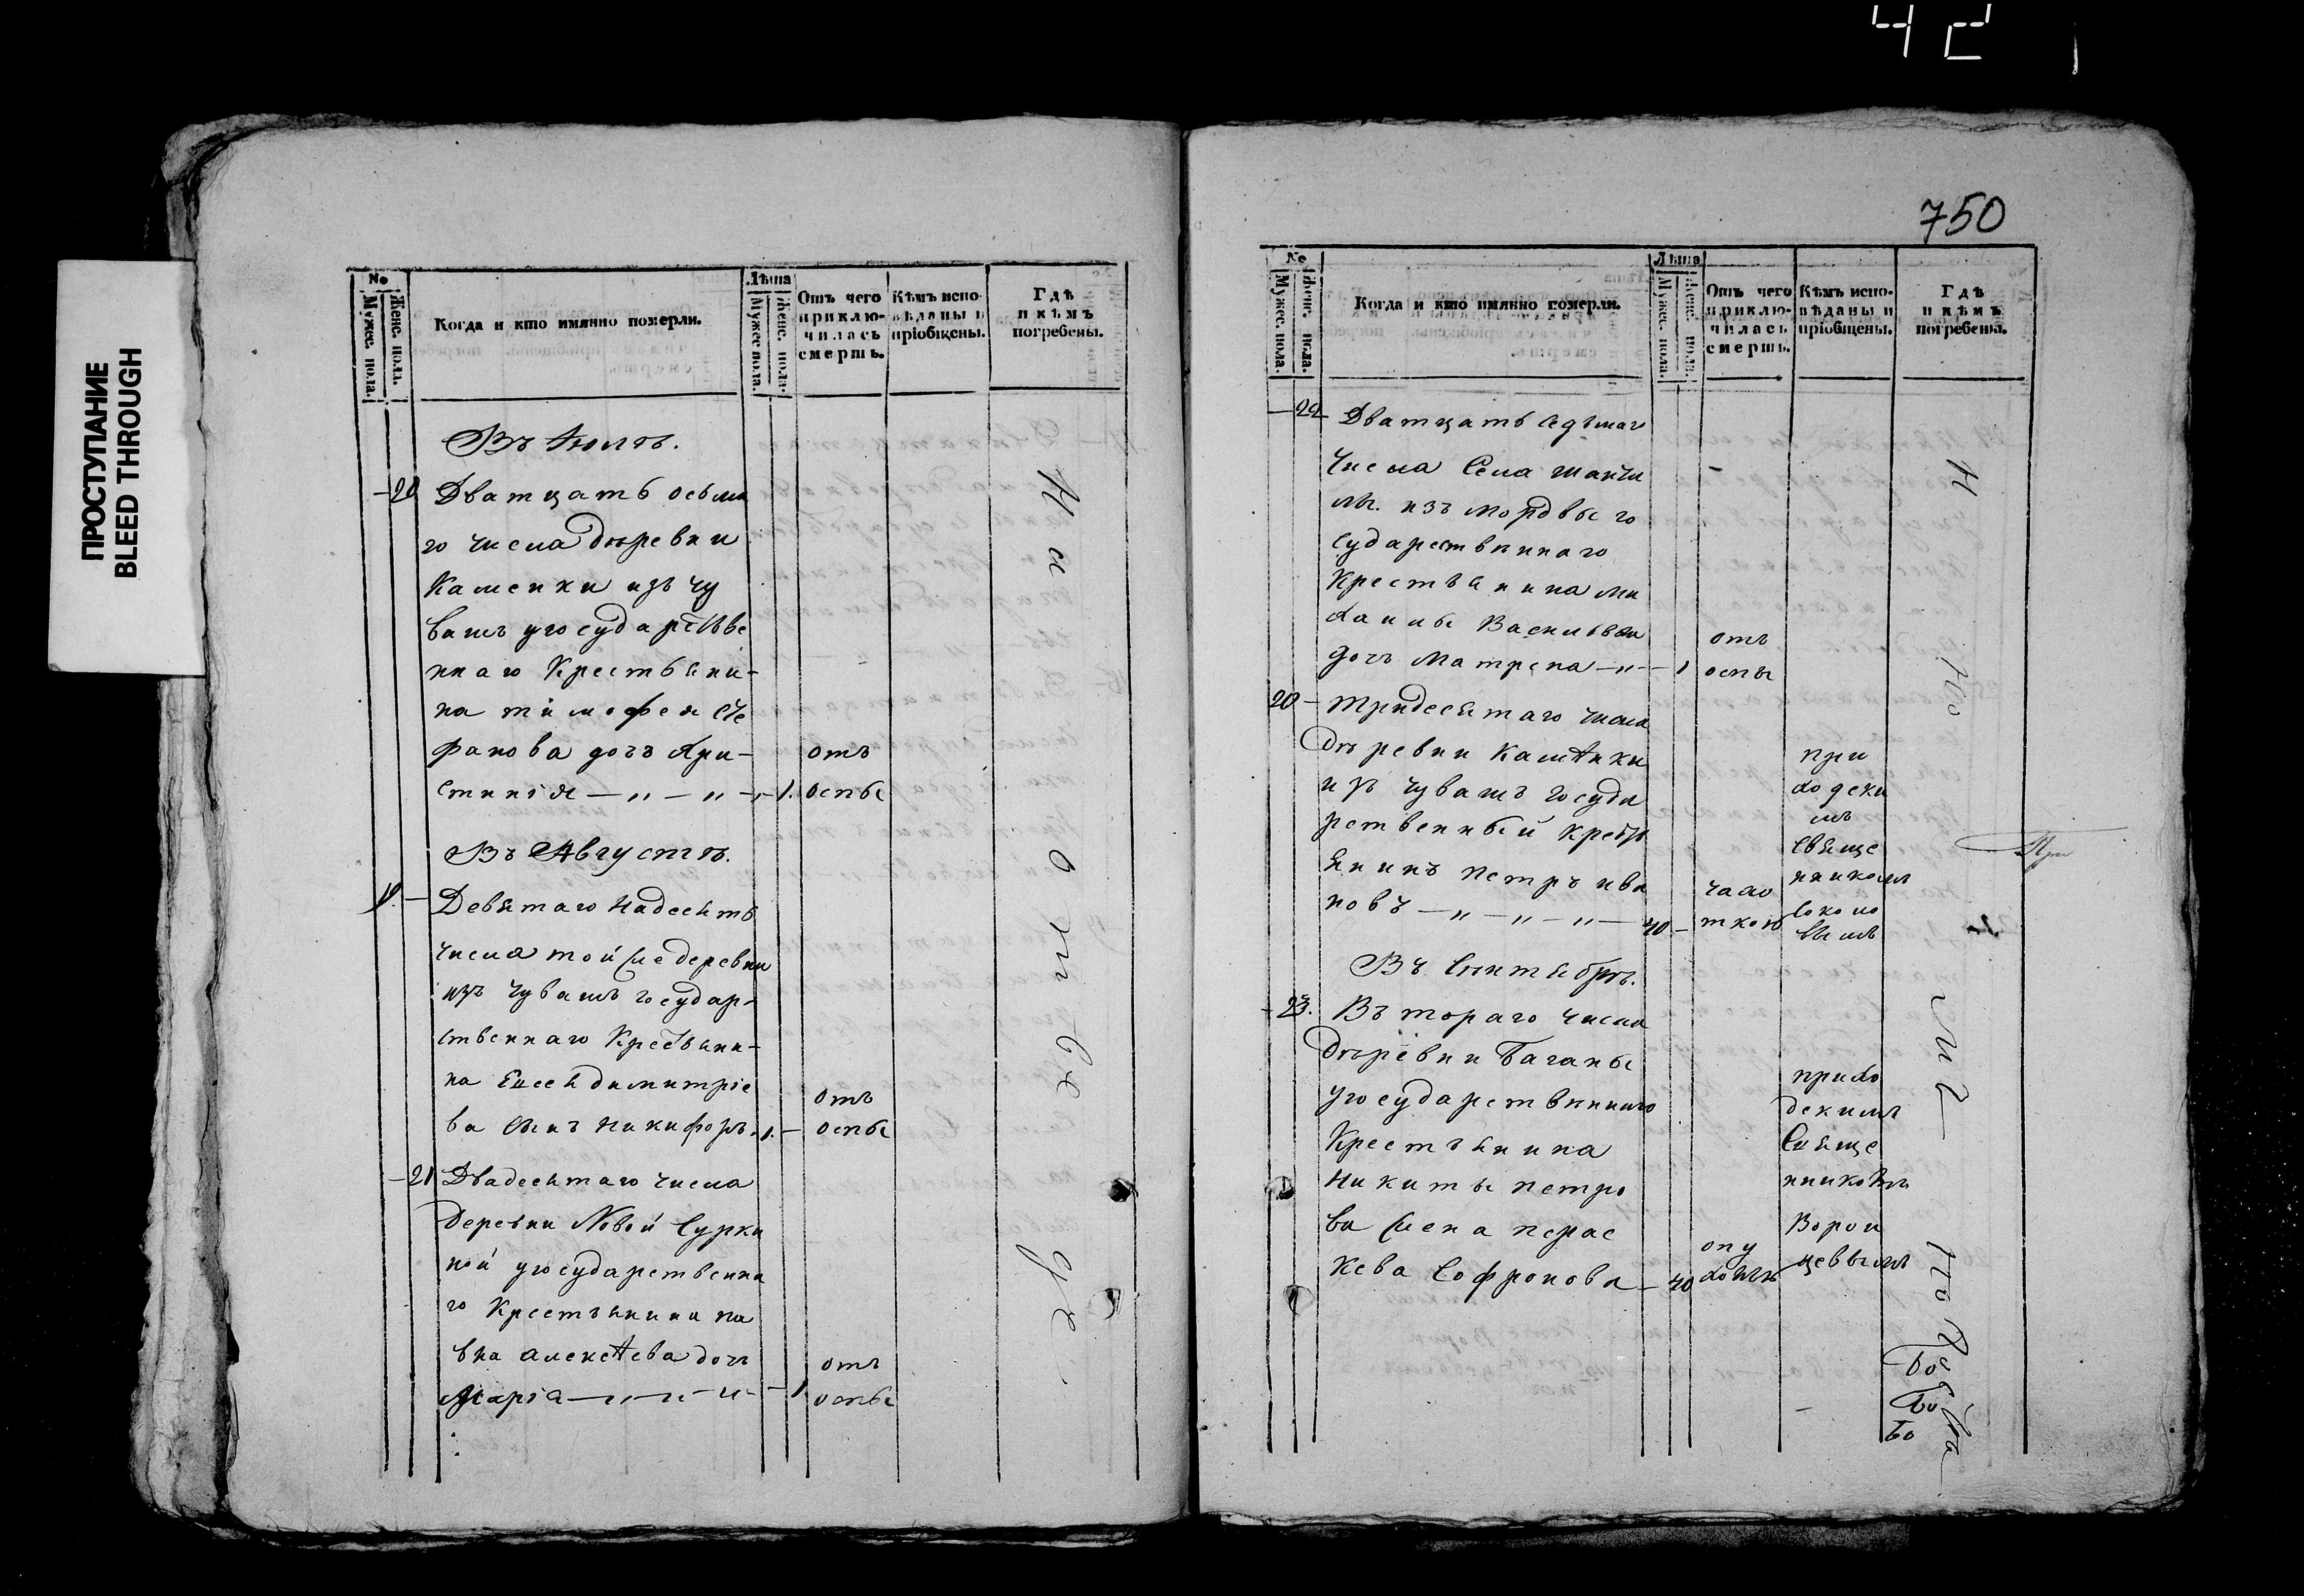 42
ПРОСТУПАНИЕ
BLEED THROUGH
750
№
Мужес. пола.
Женс. пола.
Когда и кто имянно померли.
Лѣта
Мужес пола.
Женс. пола.
Отъ чего приклю-
чилась
смерть.
Кѣмъ испо-
вѣданы и
пріобщены.
Гдѣ
и кѣмъ
погребены.
Въ Іюлѣ.
20 Дватцать осьма
го числа дѣревни
Каменки изъ чу
вашъ государстве
ннаго Крестьяни-
на тимофея Сте
фанова дочь Хри-
стинія — „ — „ — 1. отъ оспы
Въ Августѣ.
Девятаго надесять
числа той же деревни
изъ чувашъ государ-
ственнаго Крестьяни-
на Елисея димитріе
ва сынъ Никифоръ. 1. — отъ оспы
21 Двадесятаго числа
Деревни Новой Сурки
ной государственна
го Крестьянина па
вла алексѣева дочь
Марія — „ — „ — 1. отъ оспы
№
Мужес. пола.
Женс. пола.
Когда и кто имянно померли.
Лѣта
Мужес. пола.
Женс. пола.
Отъ чего
приклю-
чилась
смерть.
Кѣмъ испо-
вѣданы и
пріобщены.
Гдѣ
и кѣмъ
погребены.
22 Дватцать седьмаго
числа Села шанчи
лы. изъ мордвы го
сударственнаго
Крестьянина ми
хаилы Васильева
дочь Матрена — „ — 1 отъ оспы
20 — тридесятаго числа
дѣревни Камѣнки
изъ чувашъ госуда
рственный крестья
янинъ петръ ива
новъ — „ — „ — „ — 40 — чахо
ткою
при
ходски
мъ
свяще
нникомъ
Соколо
вымъ
Въ Сентябрѣ.
23. Втораго числа
дѣревни Баганы
государственнаго
Крестьянина
Никиты петро
ва жена перас
кева Софронова — 40 опу
холью
прихо
дскимъ
Свяще
нникомъ
Ворон
цевымъ